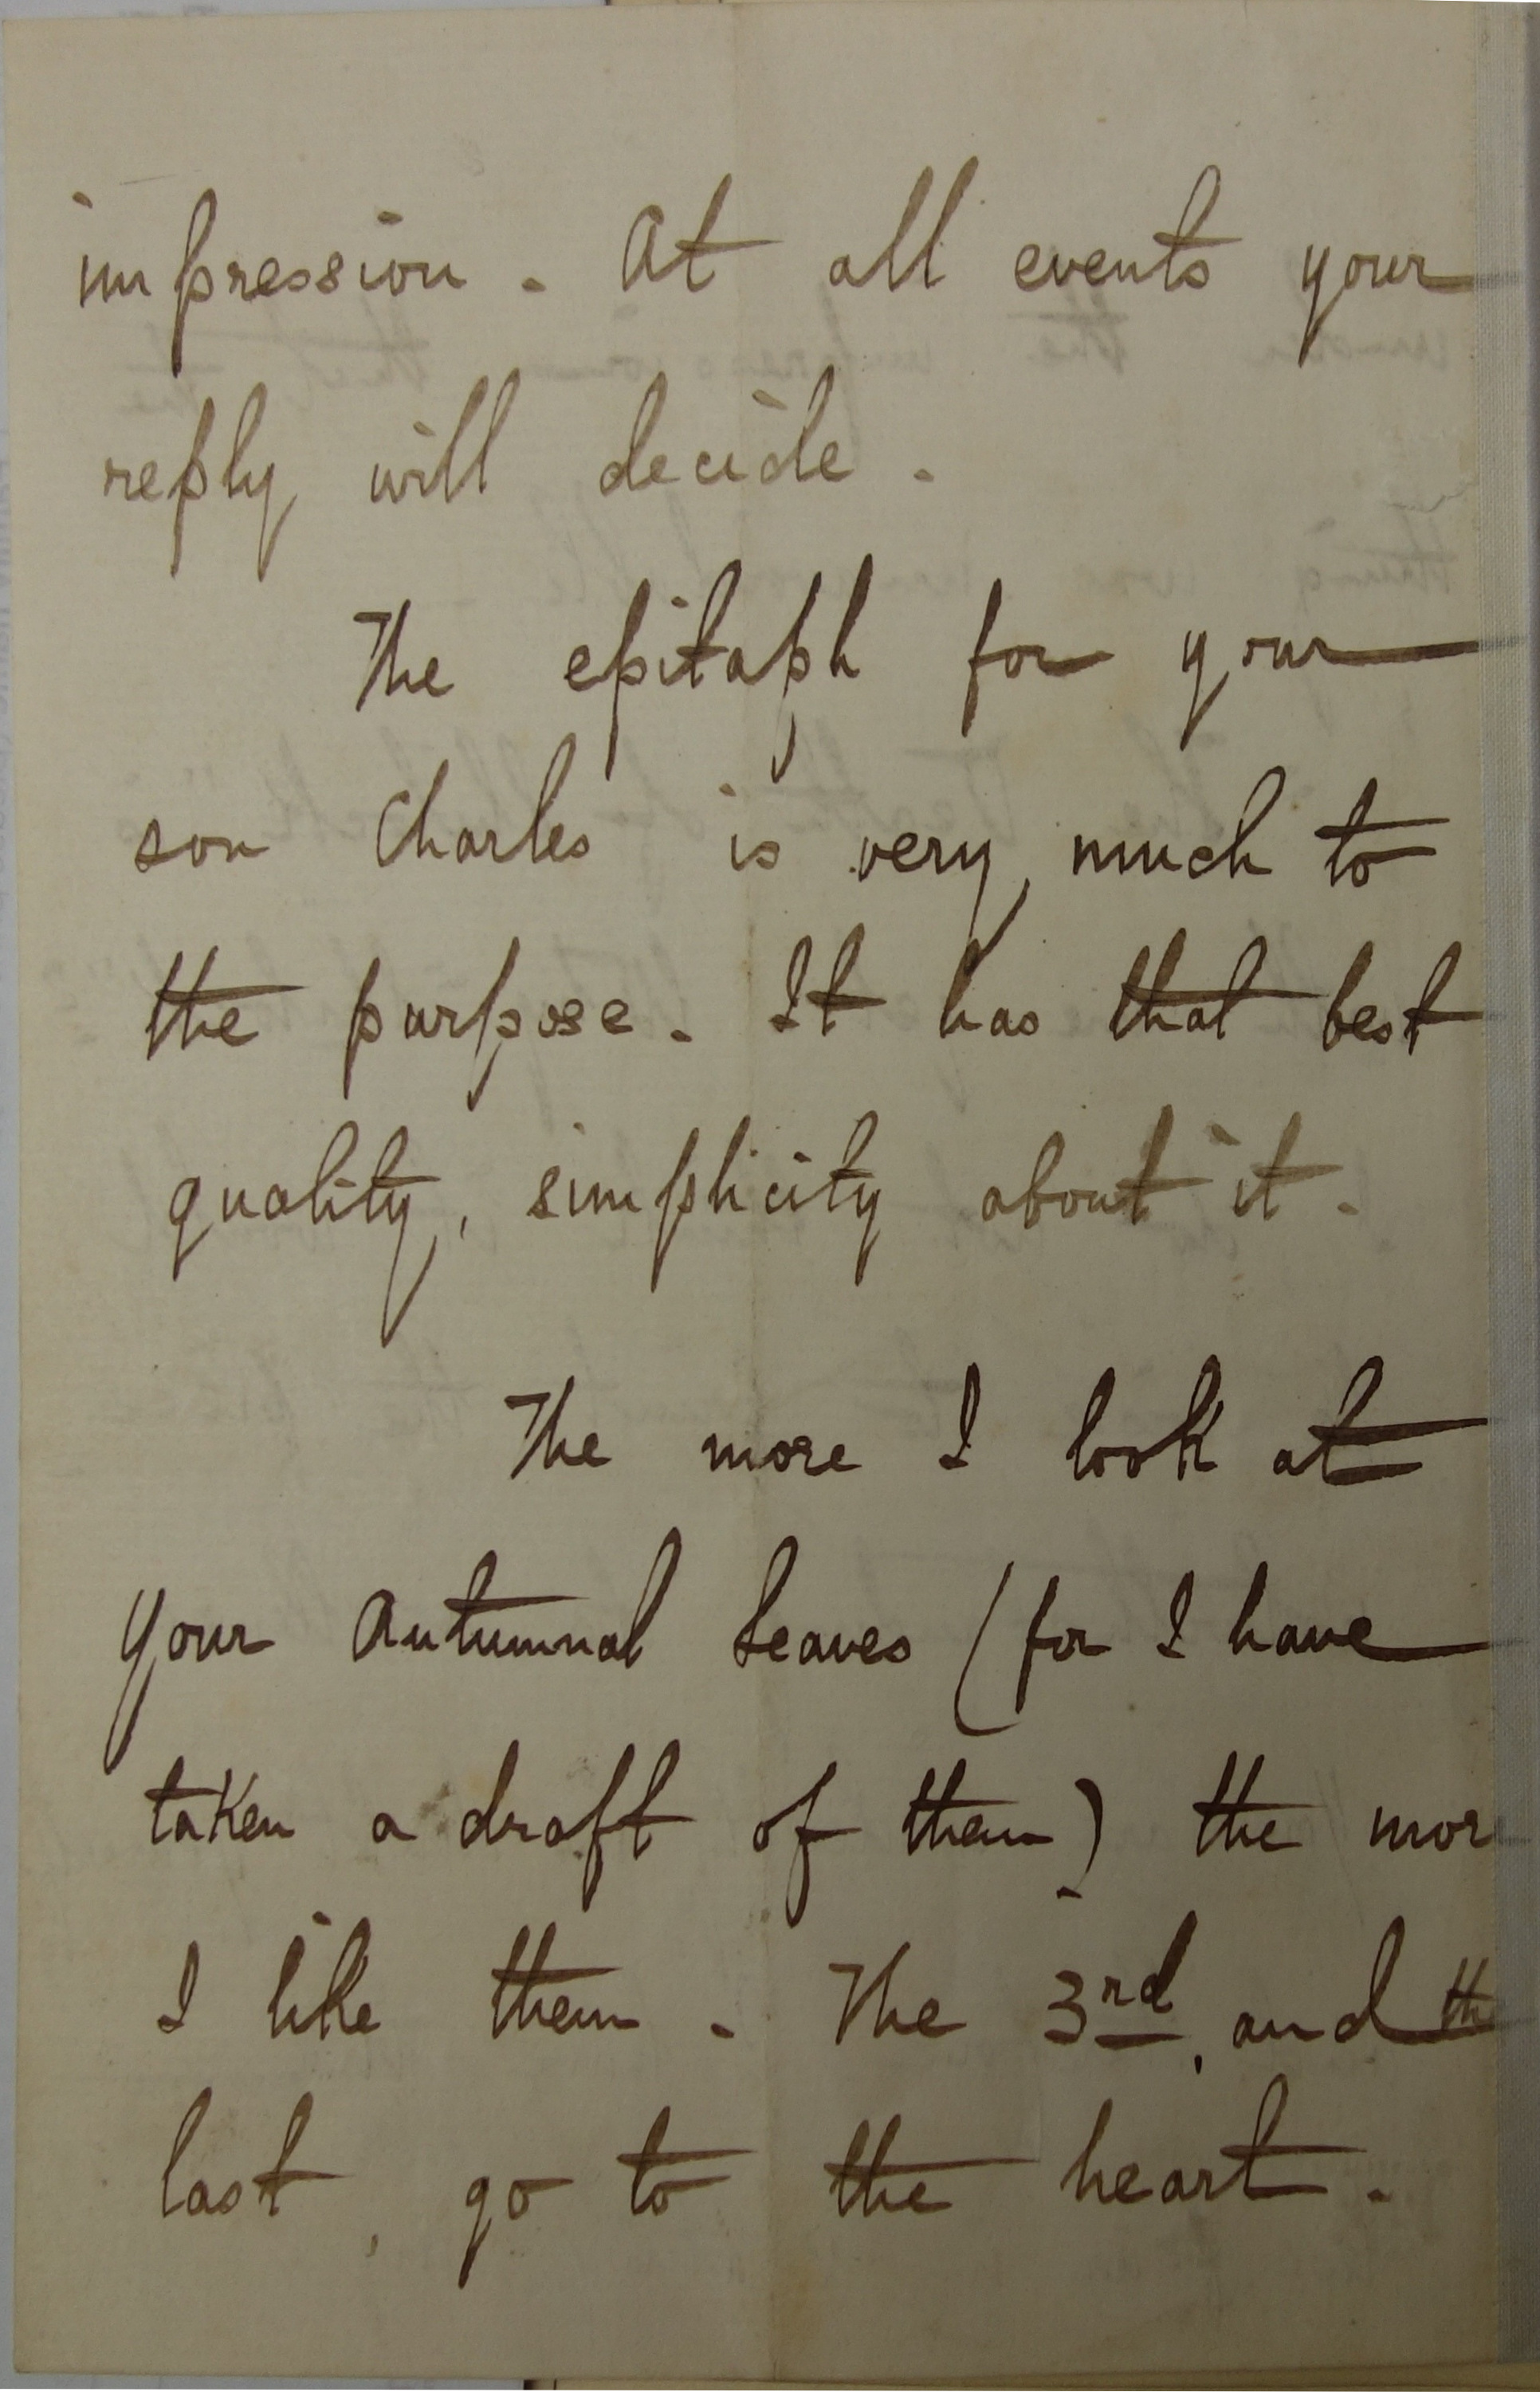 impression. At all events your
reply will decide.
The epitaph for your
son Charles is very much to
the purpose. It has that best
quality, simplicity about it.
The more I look at
your Autumnal Leaves (for I have
taken a draft of them) the mor
I like them. The 3rd, and th
last, go to the heart.